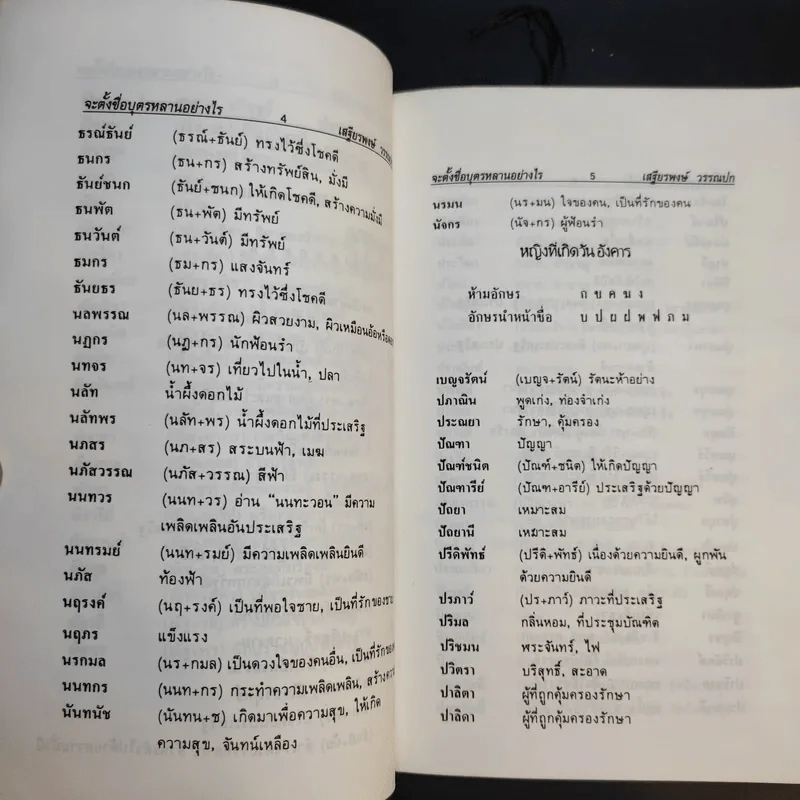 จะตั้งชื่อบุตรหลานอย่างไร 4 เสฐียรพงษ์ วรรณปก
ธรณ์ธันย์ (ธรณ์+ธันย์) ทรงไว้ซึ่งโชคดี
ธนกร (ธน+กร) สร้างทรัพย์สิน, มั่งมี
ธันย์ชนก (ธันย์+ชนก) ให้เกิดโชคดี, สร้างความมั่งมี
ธนพัต (ธน+พัต) มีทรัพย์
ธนวันต์ (ธน+วันต์) มีทรัพย์
ธมกร (ธม+กร) แสงจันทร์
ธันยธร (ธันย+ธร) ทรงไว้ซึ่งโชคดี
นลพรรณ (นล+พรรณ) ผิวสวยงาม, ผิวเหมือนอ้อหรือ
นฏกร (นฏ+กร) นักฟ้อนรำ
นทจร (นท+จร) เที่ยวไปในน้ำ, ปลา
นลัท น้ำผึ้งดอกไม้
นลัทพร (นลัท+พร) น้ำผึ้งดอกไม้ที่ประเสริฐ
นภสร (นภ+สร) สระบนฟ้า, เมฆ
นภัสวรรณ (นภัส+วรรณ) สีฟ้า
นนทวร (นนท+วร) อ่าน “นนทะวอน” มีความ
เพลิดเพลินอันประเสริฐ
นนทรมย์ (นนท+รมย์) มีความเพลิดเพลินยินดี
นภัส ท้องฟ้า
นฤรงค์ (นฤ+รงค์) เป็นที่พอใจชาย, เป็นที่รักของชาย
นฤภร แข็งแรง
นรกมล (นร+กมล) เป็นดวงใจของคนอื่น, เป็นที่รักของ
นนทกร (นนท+กร) กระทำความเพลิดเพลิน, สร้างความ
นันทนัช (นันทน+ช) เกิดมาเพื่อความสุข, ให้เกิด
ความสุข, จันทน์เหลือง
จะตั้งชื่อบุตรหลานอย่างไร 5 เสฐียรพงษ์ วรรณปก
นรมน (นร+มน) ใจของคน, เป็นที่รักของคน
นัจกร (นัจ+กร) ผู้ฟ้อนรำ
หญิงที่เกิดวันอังคาร
ห้ามอักษร ก ข ค ฆ ง
อักษรนำหน้าชื่อ บ ป ผ ฝ พ ฟ ภ ม
เบญจรัตน์ (เบญจ+รัตน์) รัตนะห้าอย่าง
ปภาณิน พูดเก่ง, ท่องจำเก่ง
ประณยา รักษา, คุ้มครอง
ปัณฑา ปัญญา
ปัณฑ์ชนิต (ปัณฑ์+ชนิต) ให้เกิดปัญญา
ปัณฑารีย์ (ปัณฑ+อารีย์) ประเสริฐด้วยปัญญา
ปัถยา เหมาะสม
ปัถยานี เหมาะสม
ปรีดิพัทธ์ (ปรีดิ+พัทธ์) เนื่องด้วยความยินดี, ผูกพัน
ด้วยความยินดี
ปรภาว์ (ปร+ภาว์) ภาวะที่ประเสริฐ
ปริมล กลิ่นหอม, ที่ประชุมบัณฑิต
ปริชมน พระจันทร์, ไฟ
ปวิตรา บริสุทธิ์, สะอาด
ปาลิตา ผู้ที่ถูกคุ้มครองรักษา
ปาลิดา ผู้ที่ถูกคุ้มครองรักษา